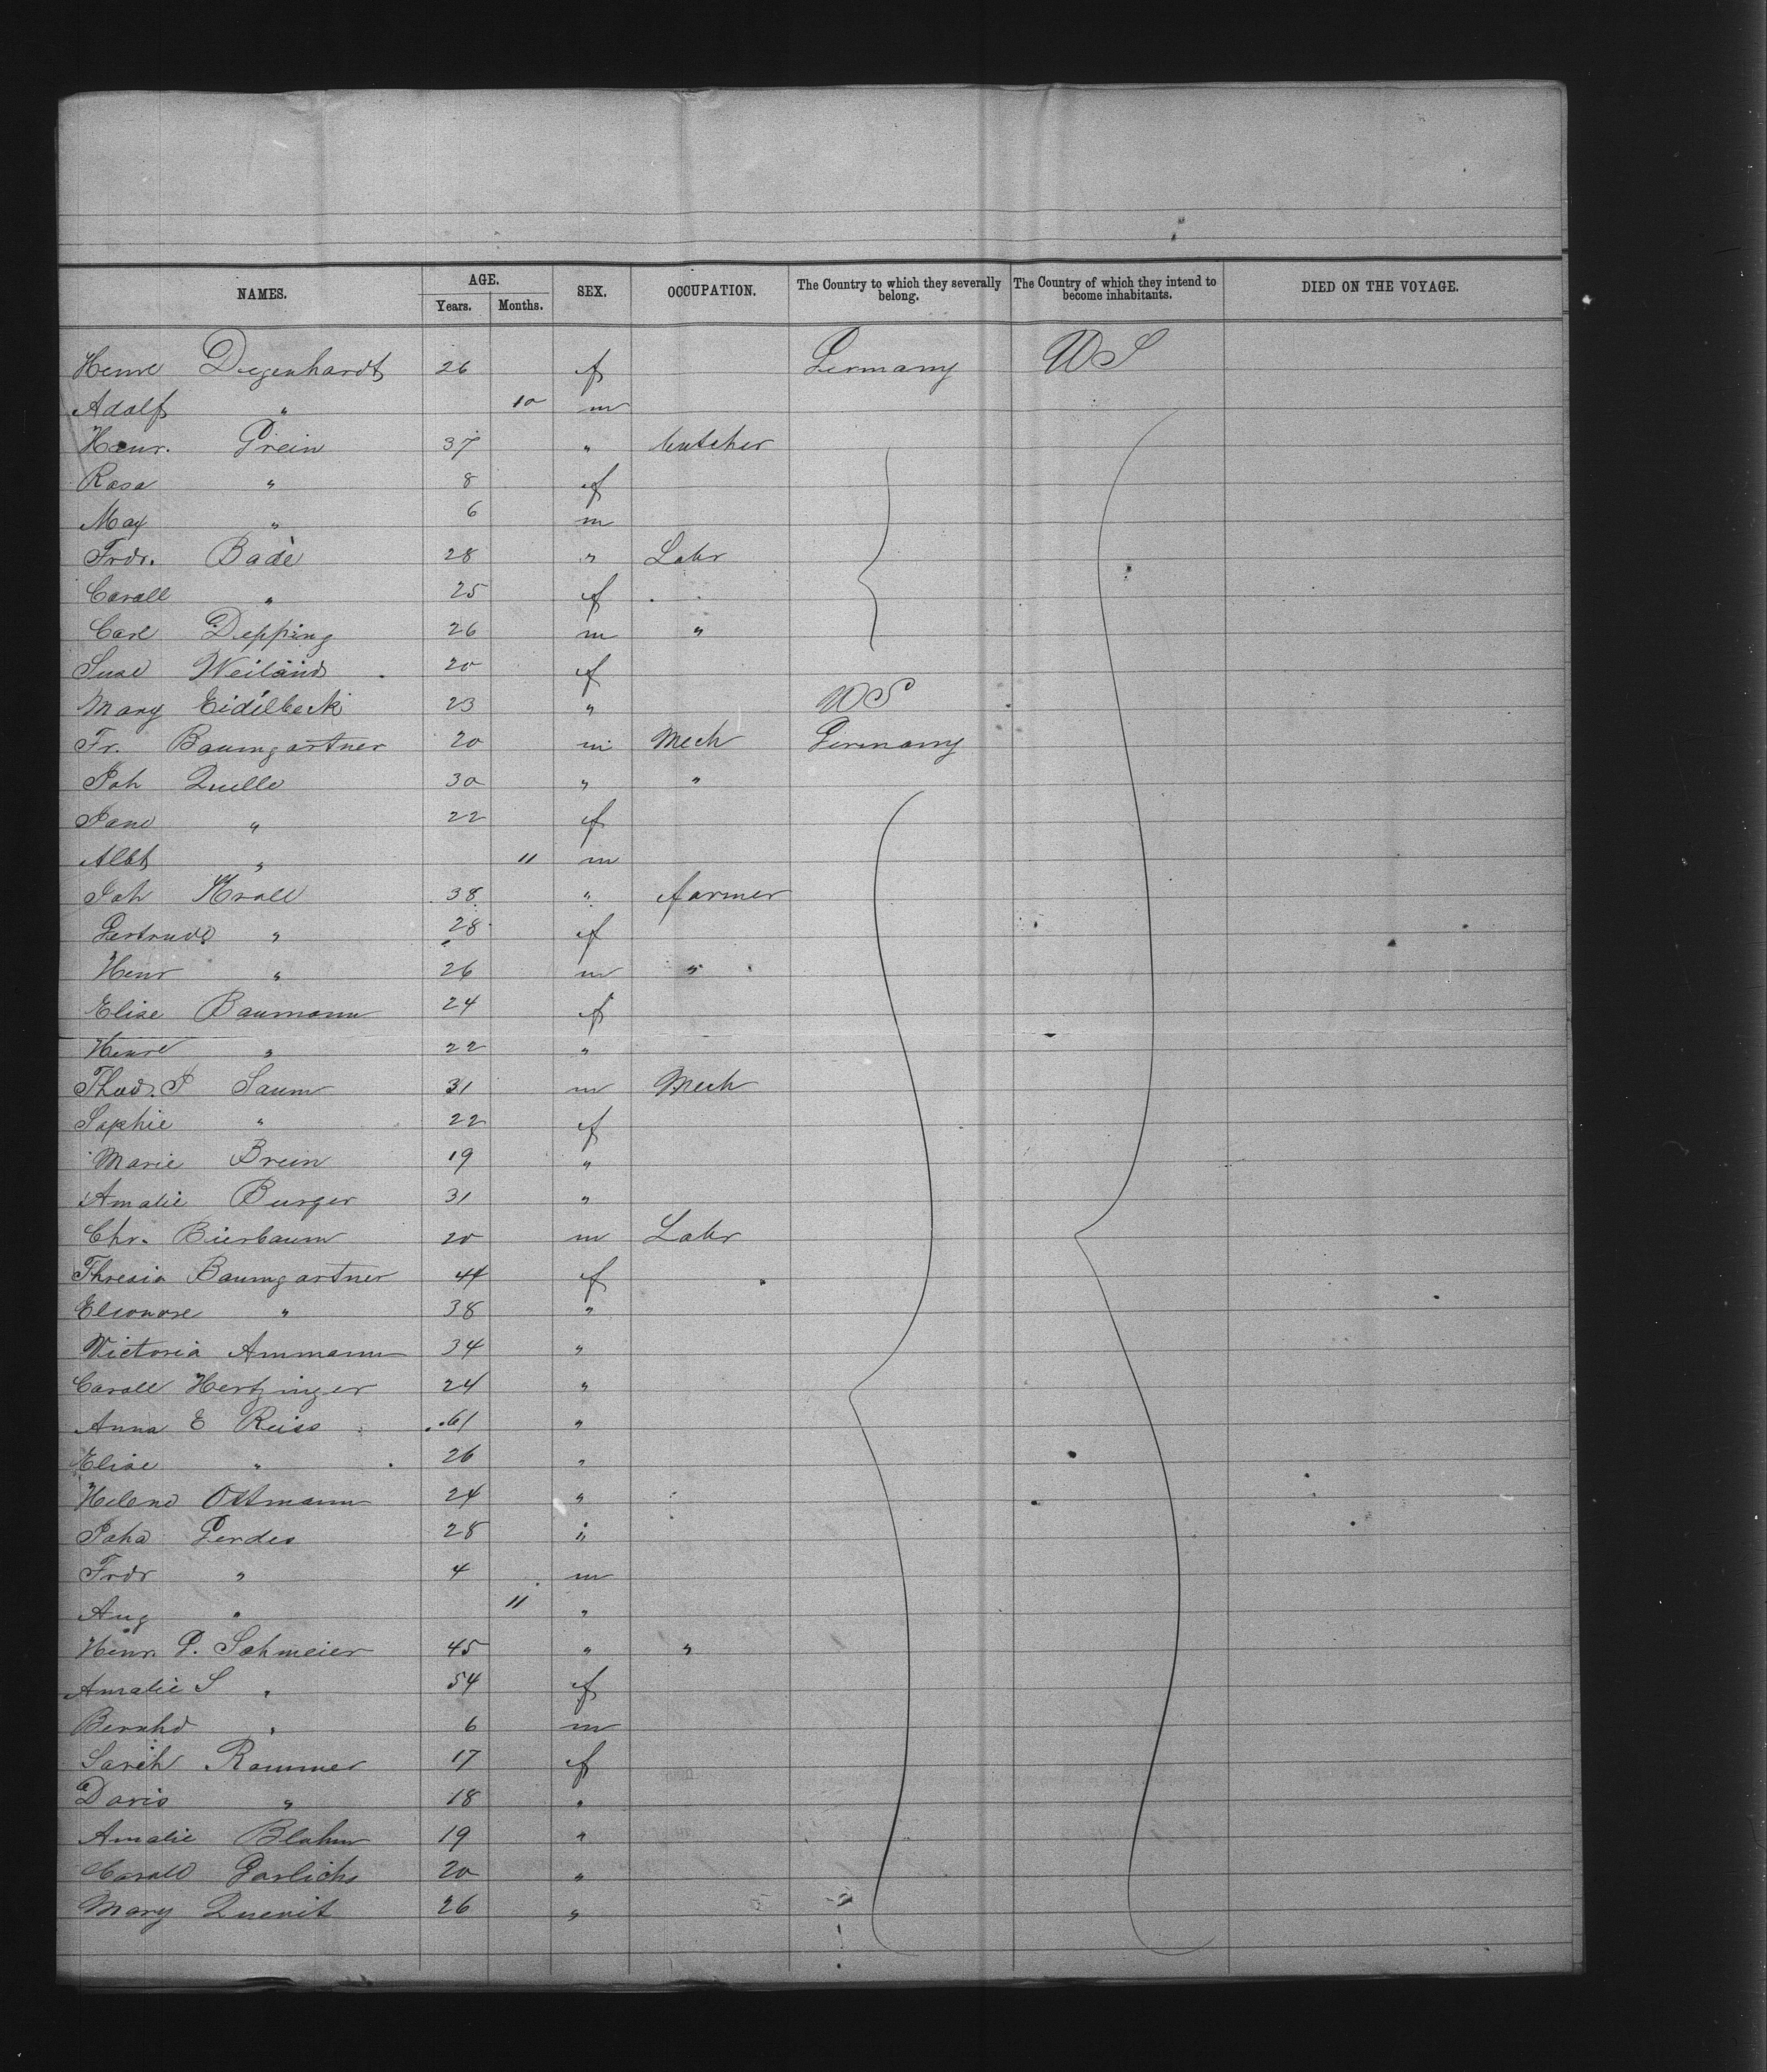 NAMES. AGE. Years. Months. SEX. OCCUPATION. The Country to which they severally belong. The Country of which they intend to become inhabitants. DIED ON THE VOYAGE.
Henre Degenhardt 26 f Germany US
Adolf " 10 m
Henr. Prein 37 " butcher
Rosa " 8 f
Max " 6 m
Frdr. Bade 28 " Labr
Caroll " 25 f
Carl Depping 26 m "
Weiland 20 f
Mary Eidelbeck 23 " US
Fr. Baumgartner 20 m Mech Germany
Joh Quelle 30 " "
Jane " 22 f
Albt " 11 m
Joh Kroll 38 " farmer
Gertrude " 28 f
Henr " 26 m "
Elise Baumann 24 f
Henre " 22 "
Thod. J Saum 31 m Mech
Sophie " 22 f
Marie Brun 19 "
Amalie Burger 31 "
Chr. Bierbaum 20 m Labr
Thresia Baumgartner 44 f
Eleonore " 38 "
Victoria Ammann 34 "
Caroll Hertzinger 24 "
Anna E Reiss 61 "
Elise " 26 "
Helene Ottmann 24 "
Joha Gerdes 28 "
Frdr " 4 m
Aug " 11 "
Henr. P. Sahmeier 45 " "
Amalie S " 54 f
Bernhd " 6 m
Sareh Rammer 17 f
Doris " 18 "
Amalie Blahm 19 "
Garlichs 20 "
Mary Quenit 26 "